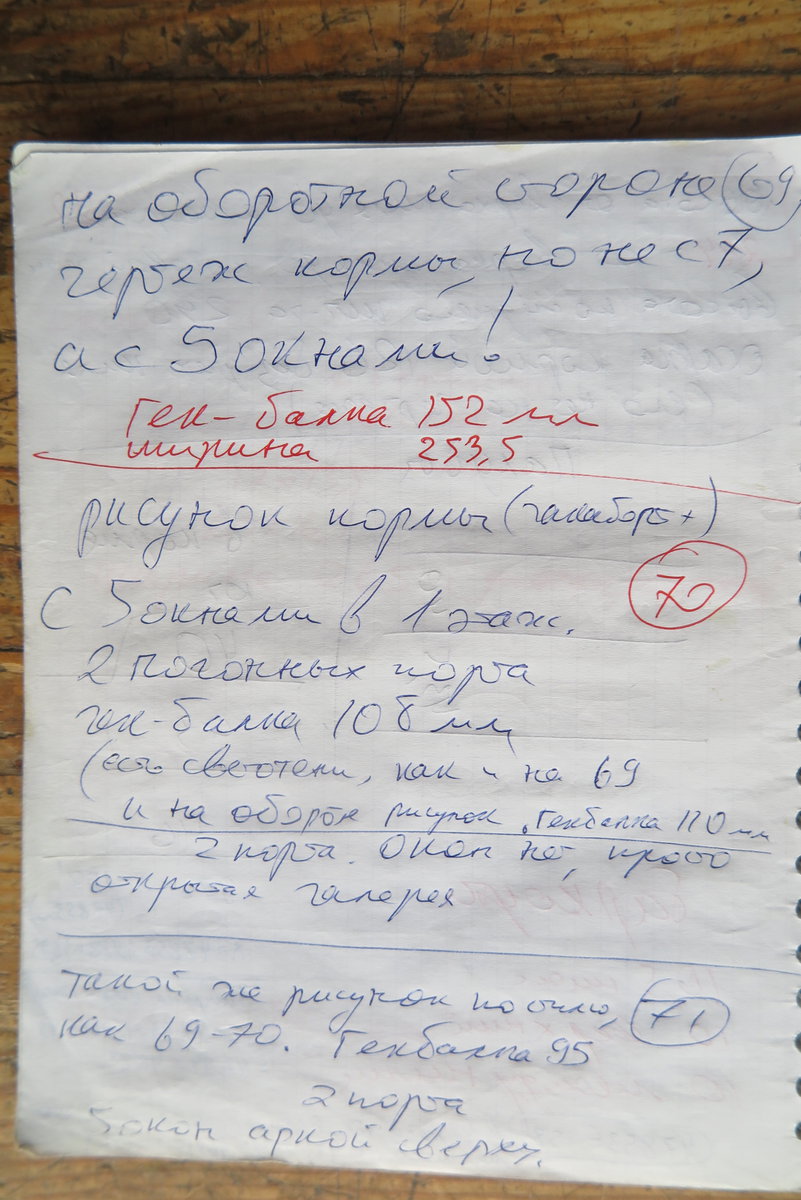 на оборотной стороне 69
чертеж кормы, но не с 7,
а с 5 окнами!
Гек-балка 152 мм
ширина 253,5
рисунок кормы (гакаборт +)
70
с 5 окнами в 1 этаж.
2 погонных порта
гек-балка 108 мм
(есть светотени, как и на 69
и на обороте рисунок. Гекбалка 110 мм
2 порта. Окон нет, просто
открытая галерея
такой же рисунок по стилю, 71
как 69-70. Гекбалка 95
2 порта
5 окон аркой сверху.